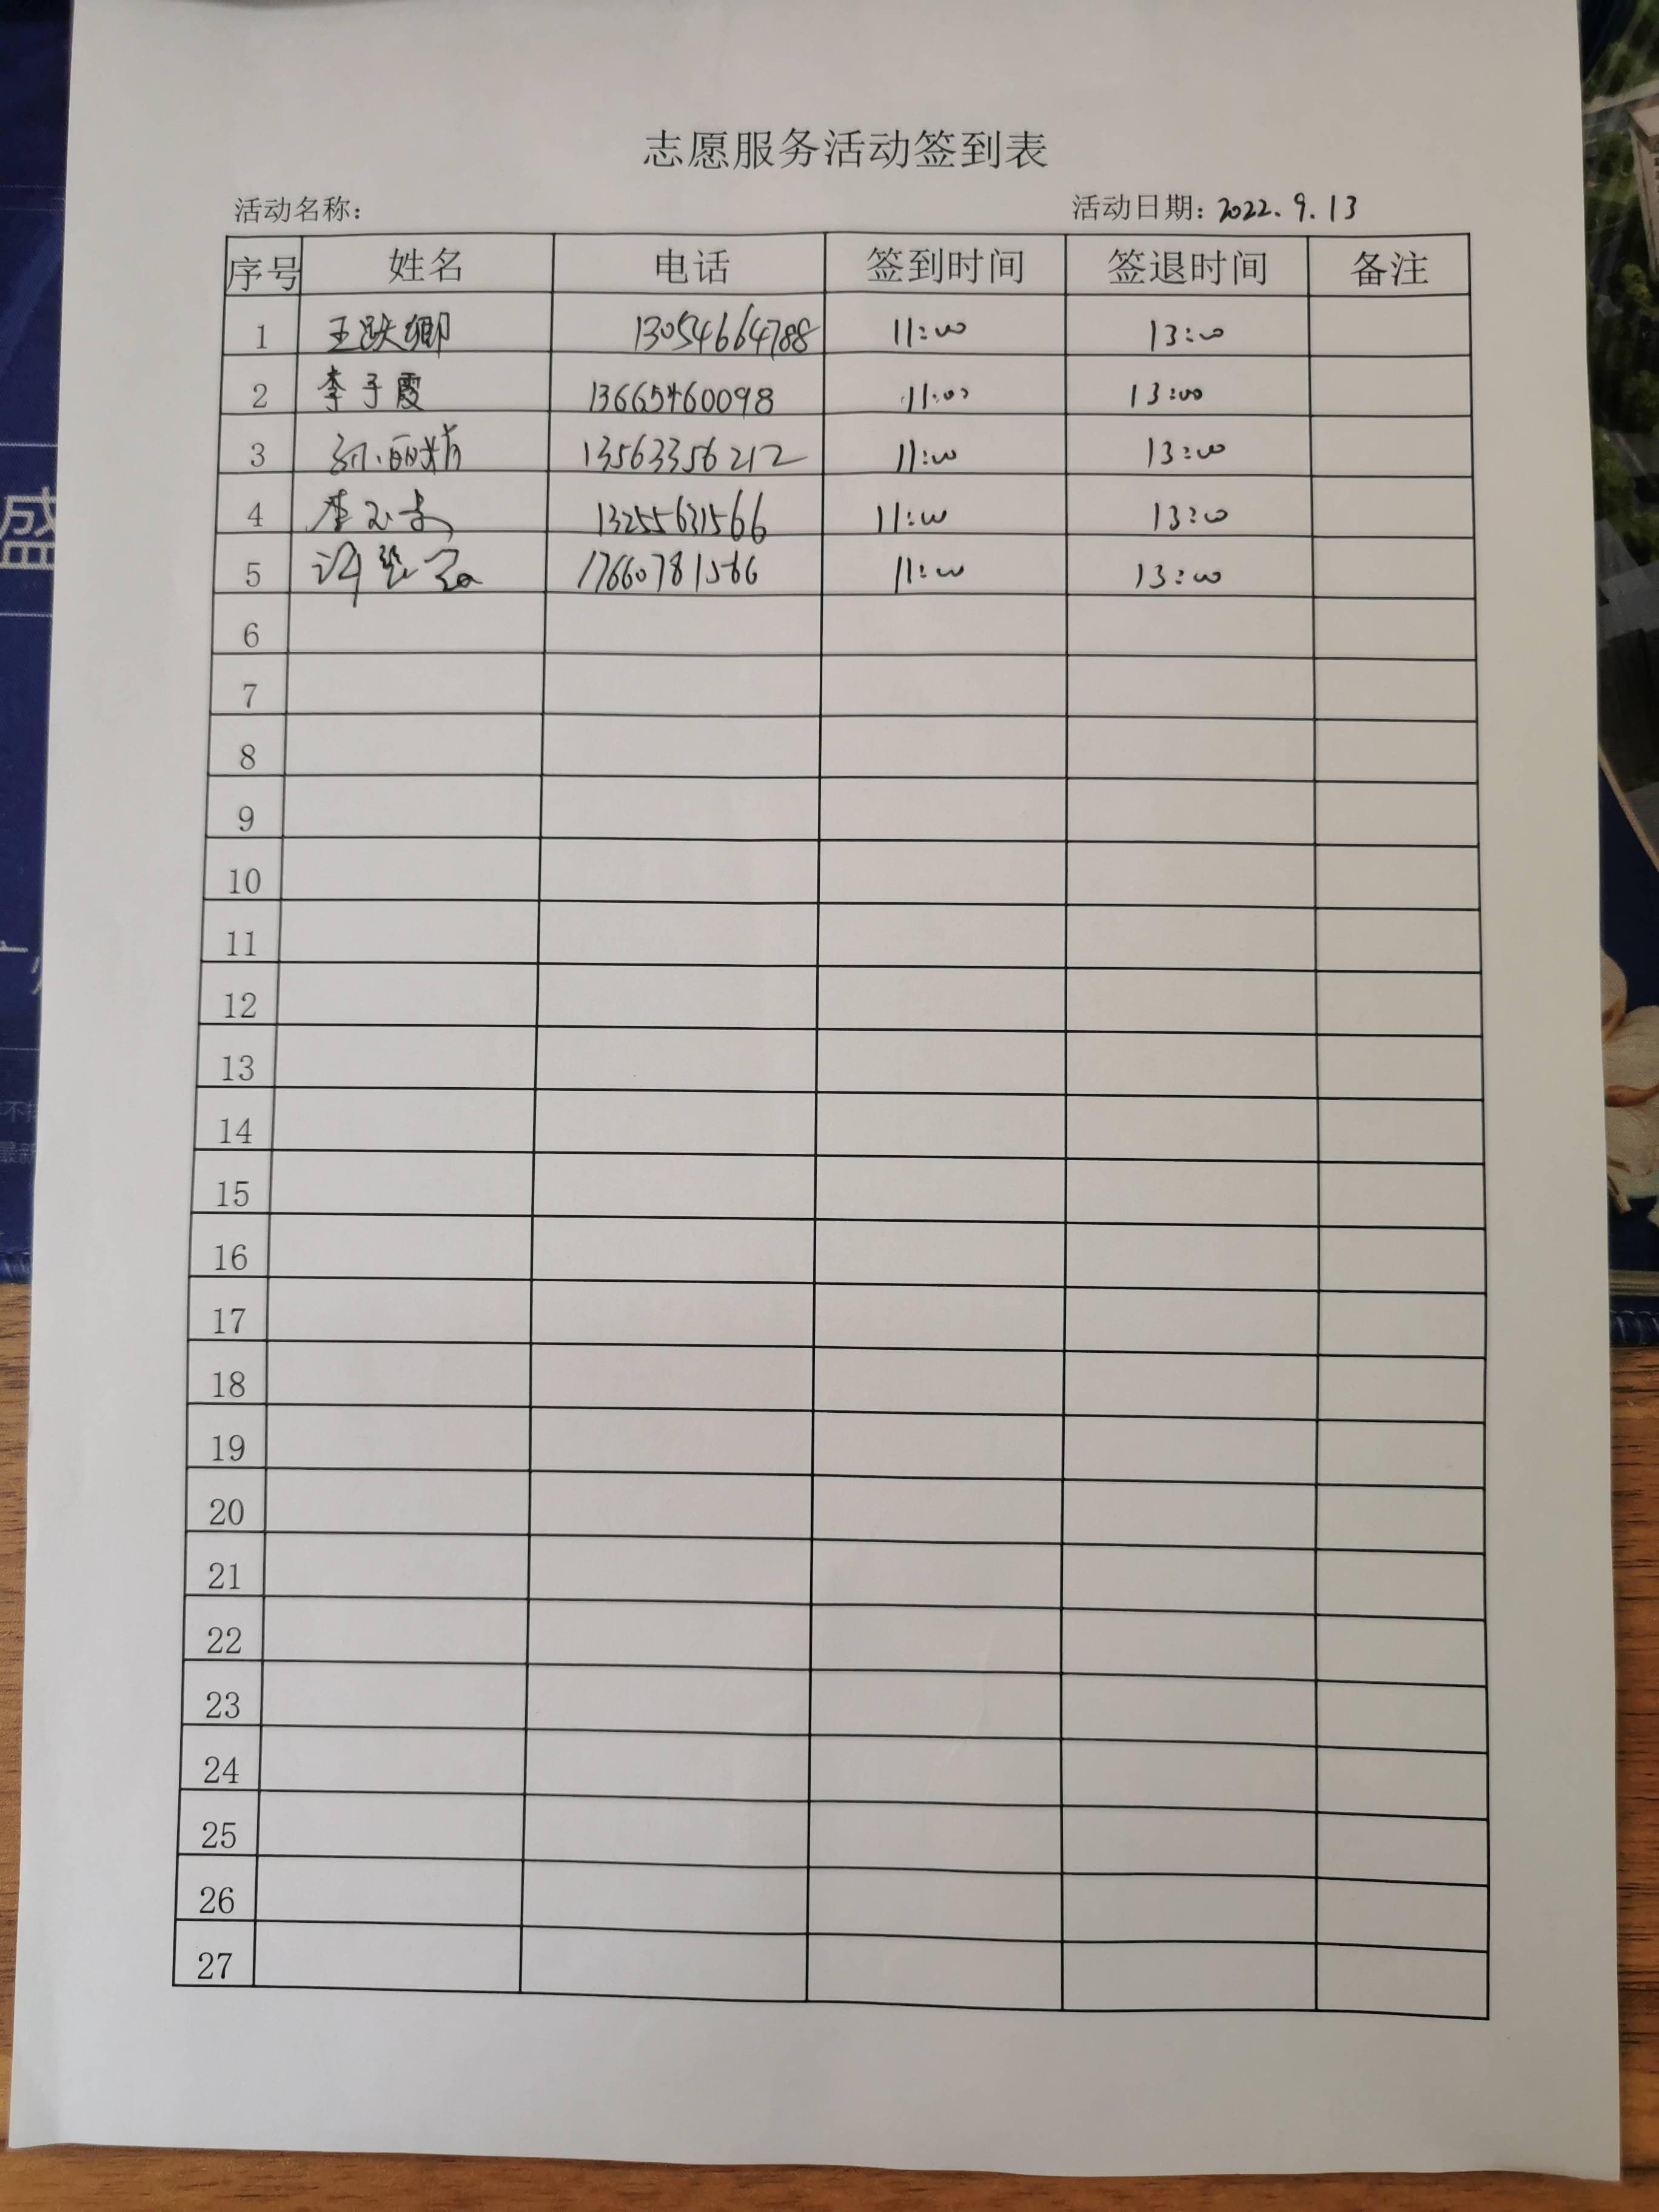 志愿服务活动签到表
活动名称: 活动日期: 2022.9.13
序号 姓名 电话 签到时间 签退时间 备注
1 王跃卿 13054664788 11:00 13:00
2 李子霞 13665460098 11:00 13:00
3 孙丽娟 13563356212 11:00 13:00
4 李 13255631566 11:00 13:00
5 许 17660781566 11:00 13:00
6
7
8
9
10
11
12
13
14
15
16
17
18
19
20
21
22
23
24
25
26
27
盛